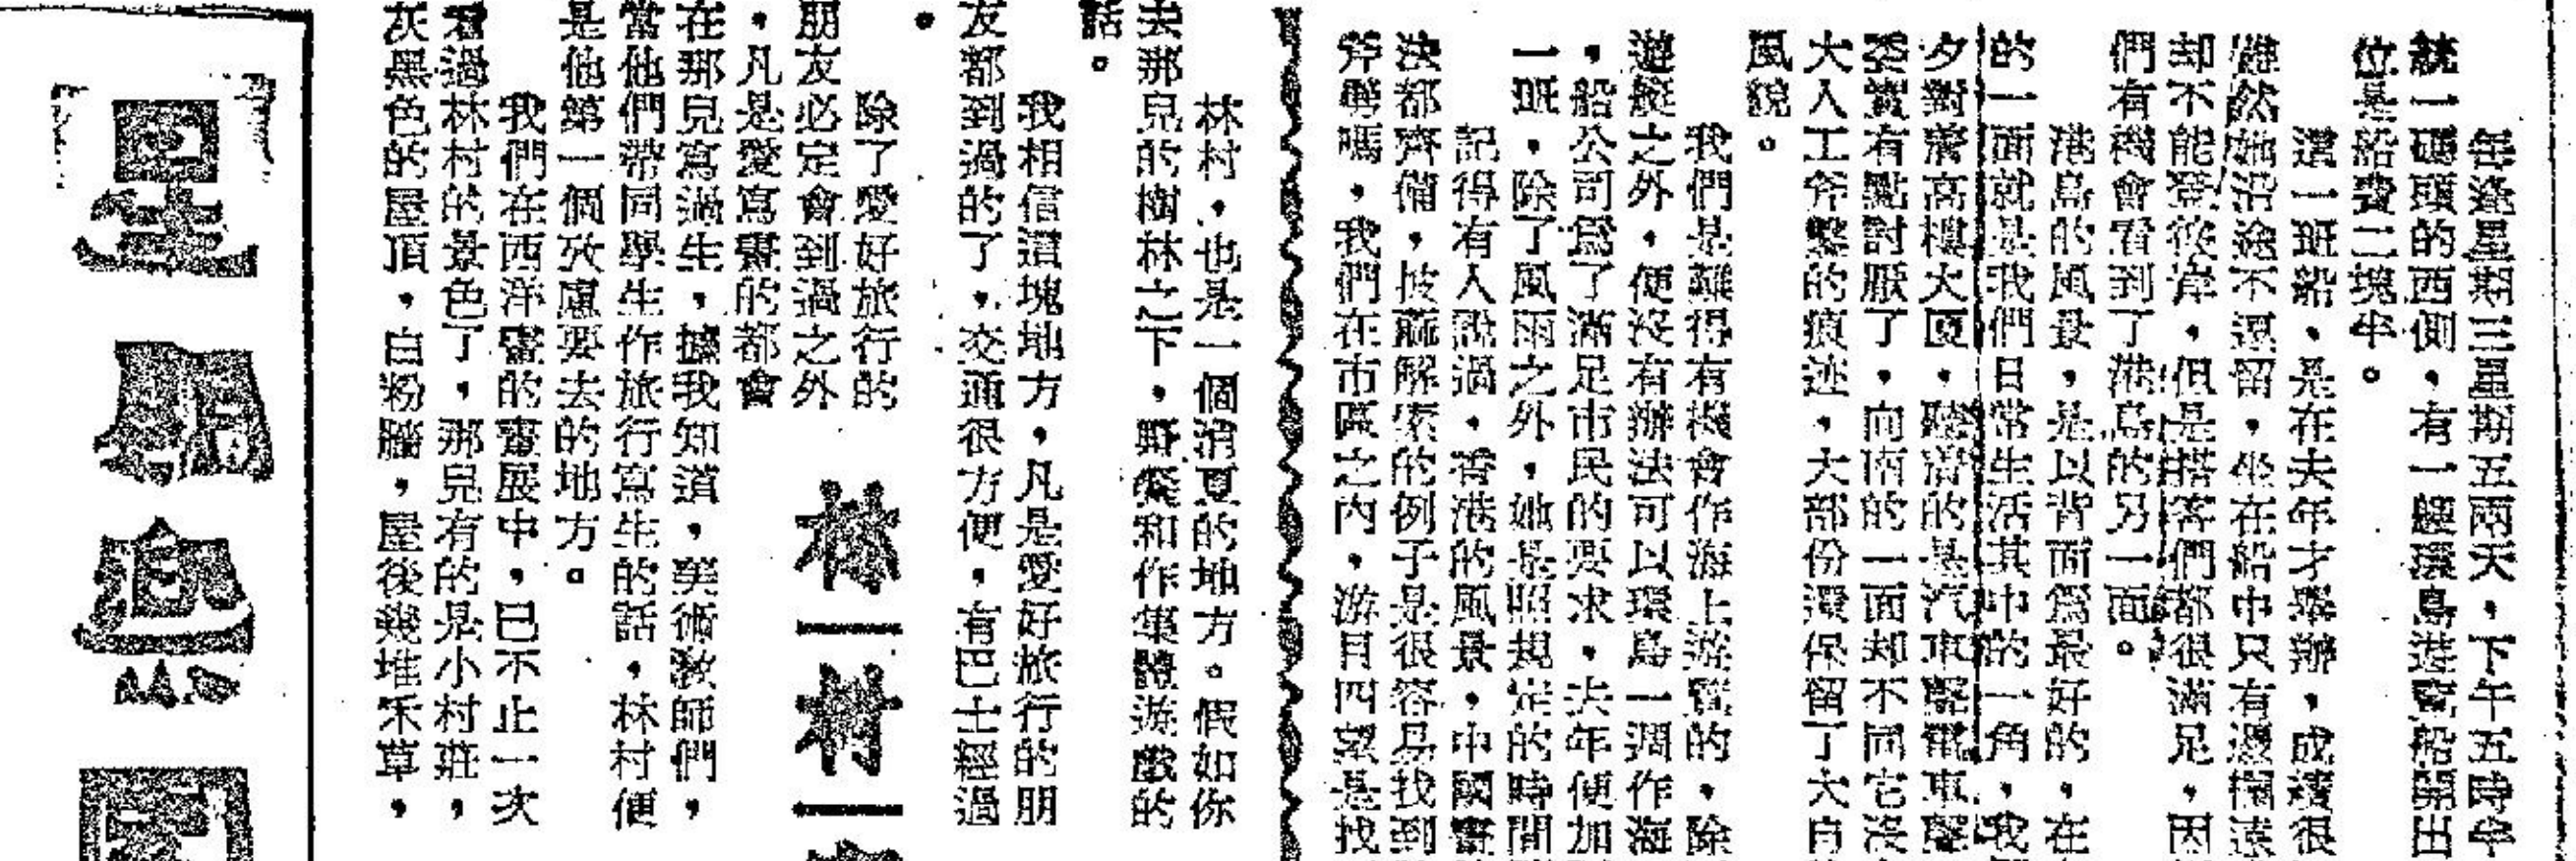 每逢星期三星期五兩天，下午五時半
統一碼頭的西側，有一艘環島遊覽船開出
位是船費二塊半。
這一班船，是在去年才舉辦，成績很
雖然船沿途不逗留，坐在船中只有憑欄遠
却不能登彼岸，但是搭客們都很滿足，因
們有機會看到了港島的另一面。
港島的風景，是以背面爲最好的，在
的一面就是我們日常生活其中的一角，我
夕對着高樓大厦，聽滿的是汽車聲電車聲
委實有點討厭了，向南的一面却不同它沒
大人工斧鑿的痕迹，大部份還保留了大自
風貌。
我們是難得有機會作海上遊覽的，除
遊艇之外，便沒有辦法可以環島一週作海
，船公司爲了滿足市民的要求，去年便加
一班，除了風雨之外，她是照規定的時間
記得有人說過，香港的風景，中國畫
決都齊備，披蔴解索的例子是很容易找到
斧劈嗎，我們在市區之內，游目四望是找
林村，也是一個消夏的地方。假如你
去那兒的樹林之下，野餐和作集體游戲的
話。
我相信這塊地方，凡是愛好旅行的朋
友都到過的了，交通很方便，有巴士經過
。
林—村—
除了愛好旅行的
朋友必定會到過之外
，凡是愛寫畫的都會
在那兒寫過生，據我知道，美術教師們，
當他們帶同學生作旅行寫生的話，林村便
是他第一個攷慮要去的地方。
我們在西洋畫的畫展中，已不止一次
看過林村的景色了，那兒有的是小村莊，
灰黑色的屋頂，白粉牆，屋後幾堆禾草，
星期息